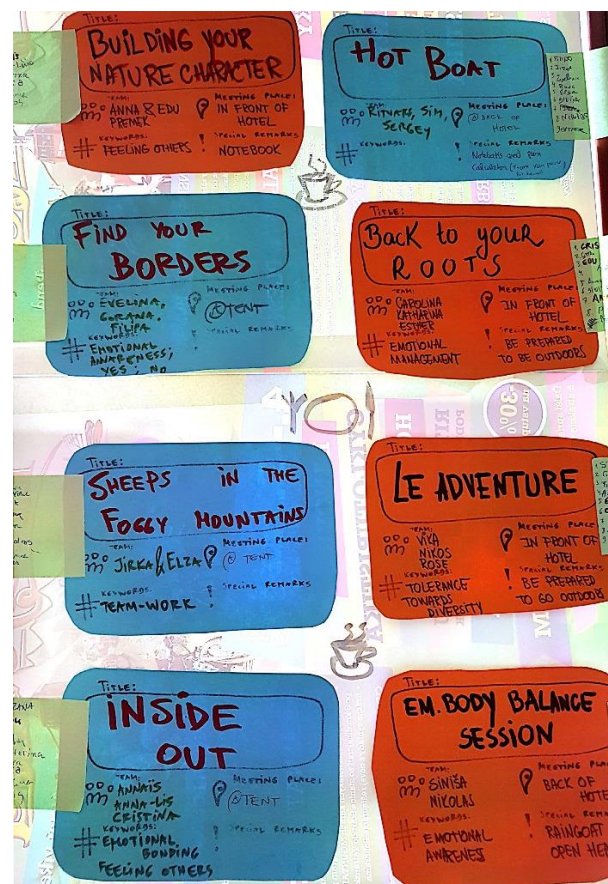 TITLE:
BUILDING YOUR
NATURE CHARACTER
TEAM:
ANNA & EDU
MEETING PLACE:
IN FRONT OF
HOTEL
KEYWORDS:
# FEELING OTHERS
SPECIAL REMARKS
! NOTEBOOK
TITLE:
HOT BOAT
TEAM:
SIM,
SERGEY
MEETING PLACE:
HOTEL
KEYWORDS:
#
SPECIAL REMARKS
!
Notebook and pen
TITLE:
FIND YOUR
BORDERS
TEAM:
EVELINA,
GORANA,
FILIPA
MEETING PLACE:
@TENT
KEYWORDS:
# EMOTIONAL
AWARENESS;
YES; NO
SPECIAL REMARKS
!
TITLE:
Back to your
ROOTS
TEAM:
CAROLINA
KATHARINA
ESTHER
MEETING PLACE:
IN FRONT OF
HOTEL
KEYWORDS:
# EMOTIONAL
MANAGEMENT
SPECIAL REMARKS
! BE PREPARED
TO BE OUTDOORS
-30%
TITLE:
SHEEPS IN THE
FOGGY MOUNTAINS
TEAM:
JIRKA & ELZA
MEETING PLACE:
@ TENT
KEYWORDS:
# TEAM-WORK
SPECIAL REMARKS
!
TITLE:
LE ADVENTURE
TEAM:
VIKA
NIKOS
ROSE
MEETING PLACE:
IN FRONT OF
HOTEL
KEYWORDS:
# TOLERANCE
TOWARDS
DIVERSITY
SPECIAL REMARKS
! BE PREPARED
TO GO OUTDOORS
TITLE:
INSIDE
OUT
TEAM:
ANNAÏS
ANNA-LIS
CRISTINA
MEETING PLACE:
@TENT
KEYWORDS:
# EMOTIONAL
BONDING
FEELING OTHERS
SPECIAL REMARKS
!
TITLE:
EM. BODY BALANCE
SESSION
TEAM:
SINIŠA
NIKOLAS
MEETING PLA
BACK OF
HOTE
KEYWORDS:
# EMOTIONAL
AWARENESS
SPECIAL REMAR
! RAINCOAT
OPEN HEA